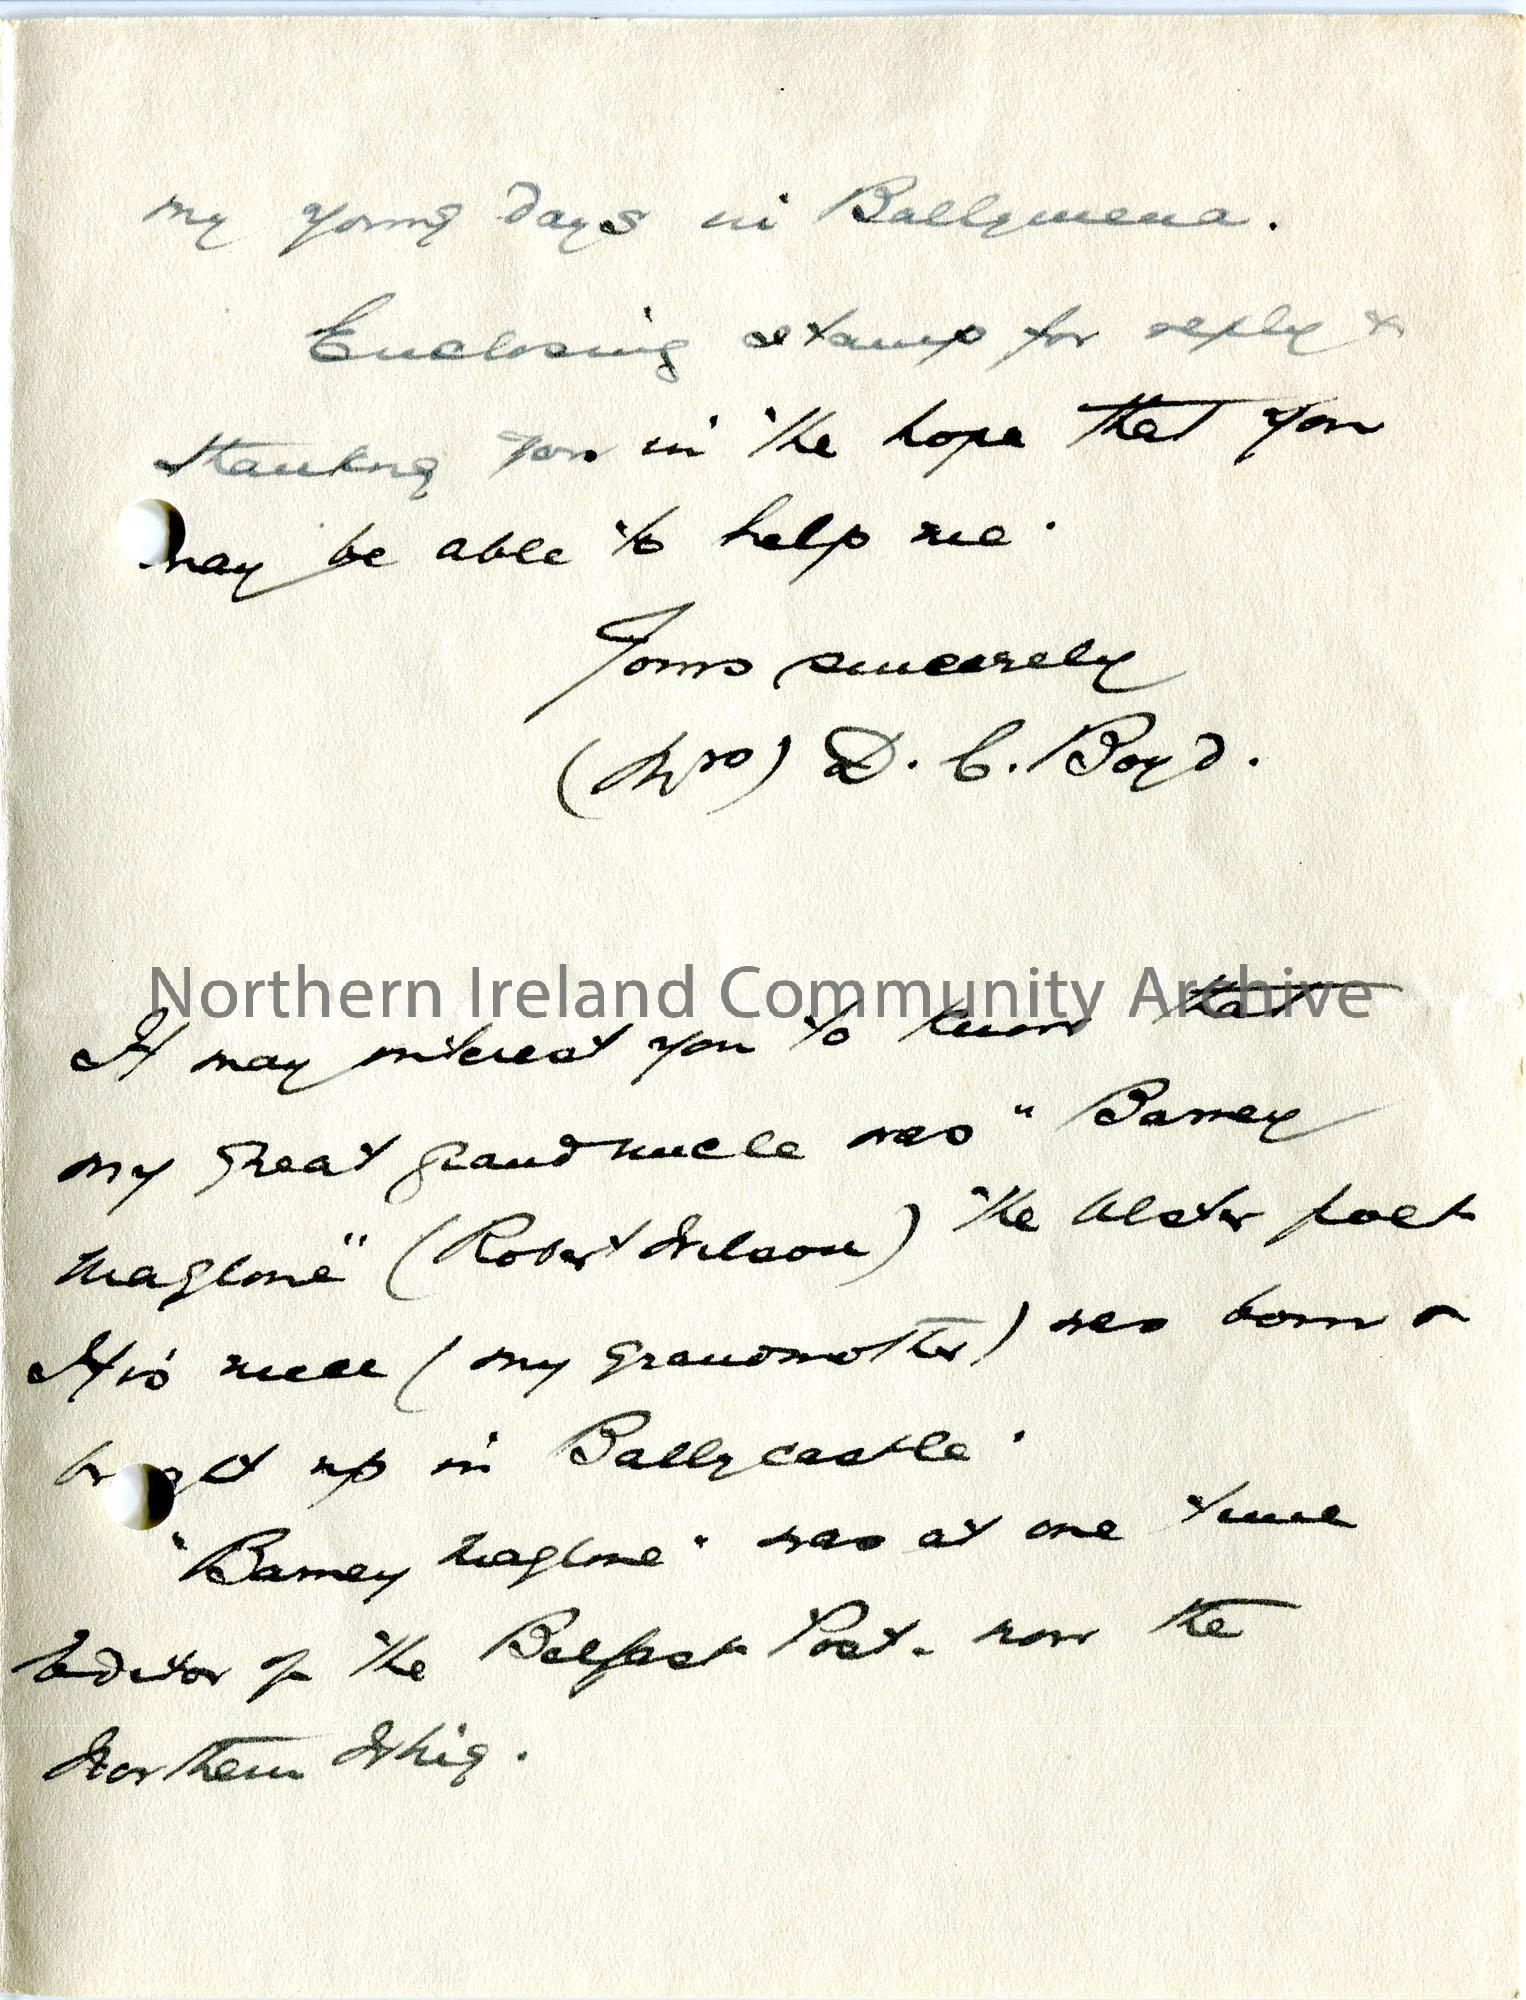 my young days in Ballymena.
Enclosing stamp for reply &
thanking you in the hope that you
may be able to help me.
Yours sincerely
(Mrs) D. C. Boyd.
Northern Ireland Community Archive
It may interest you to know that
my great granduncle was "Barney
Maglone" (Robert Wilson) the Ulster poet
His niece (my grandmother) was born &
brought up in Ballycastle.
"Barney Maglone" was at one time
Editor of the Belfast Post. now the
Northern Whig.